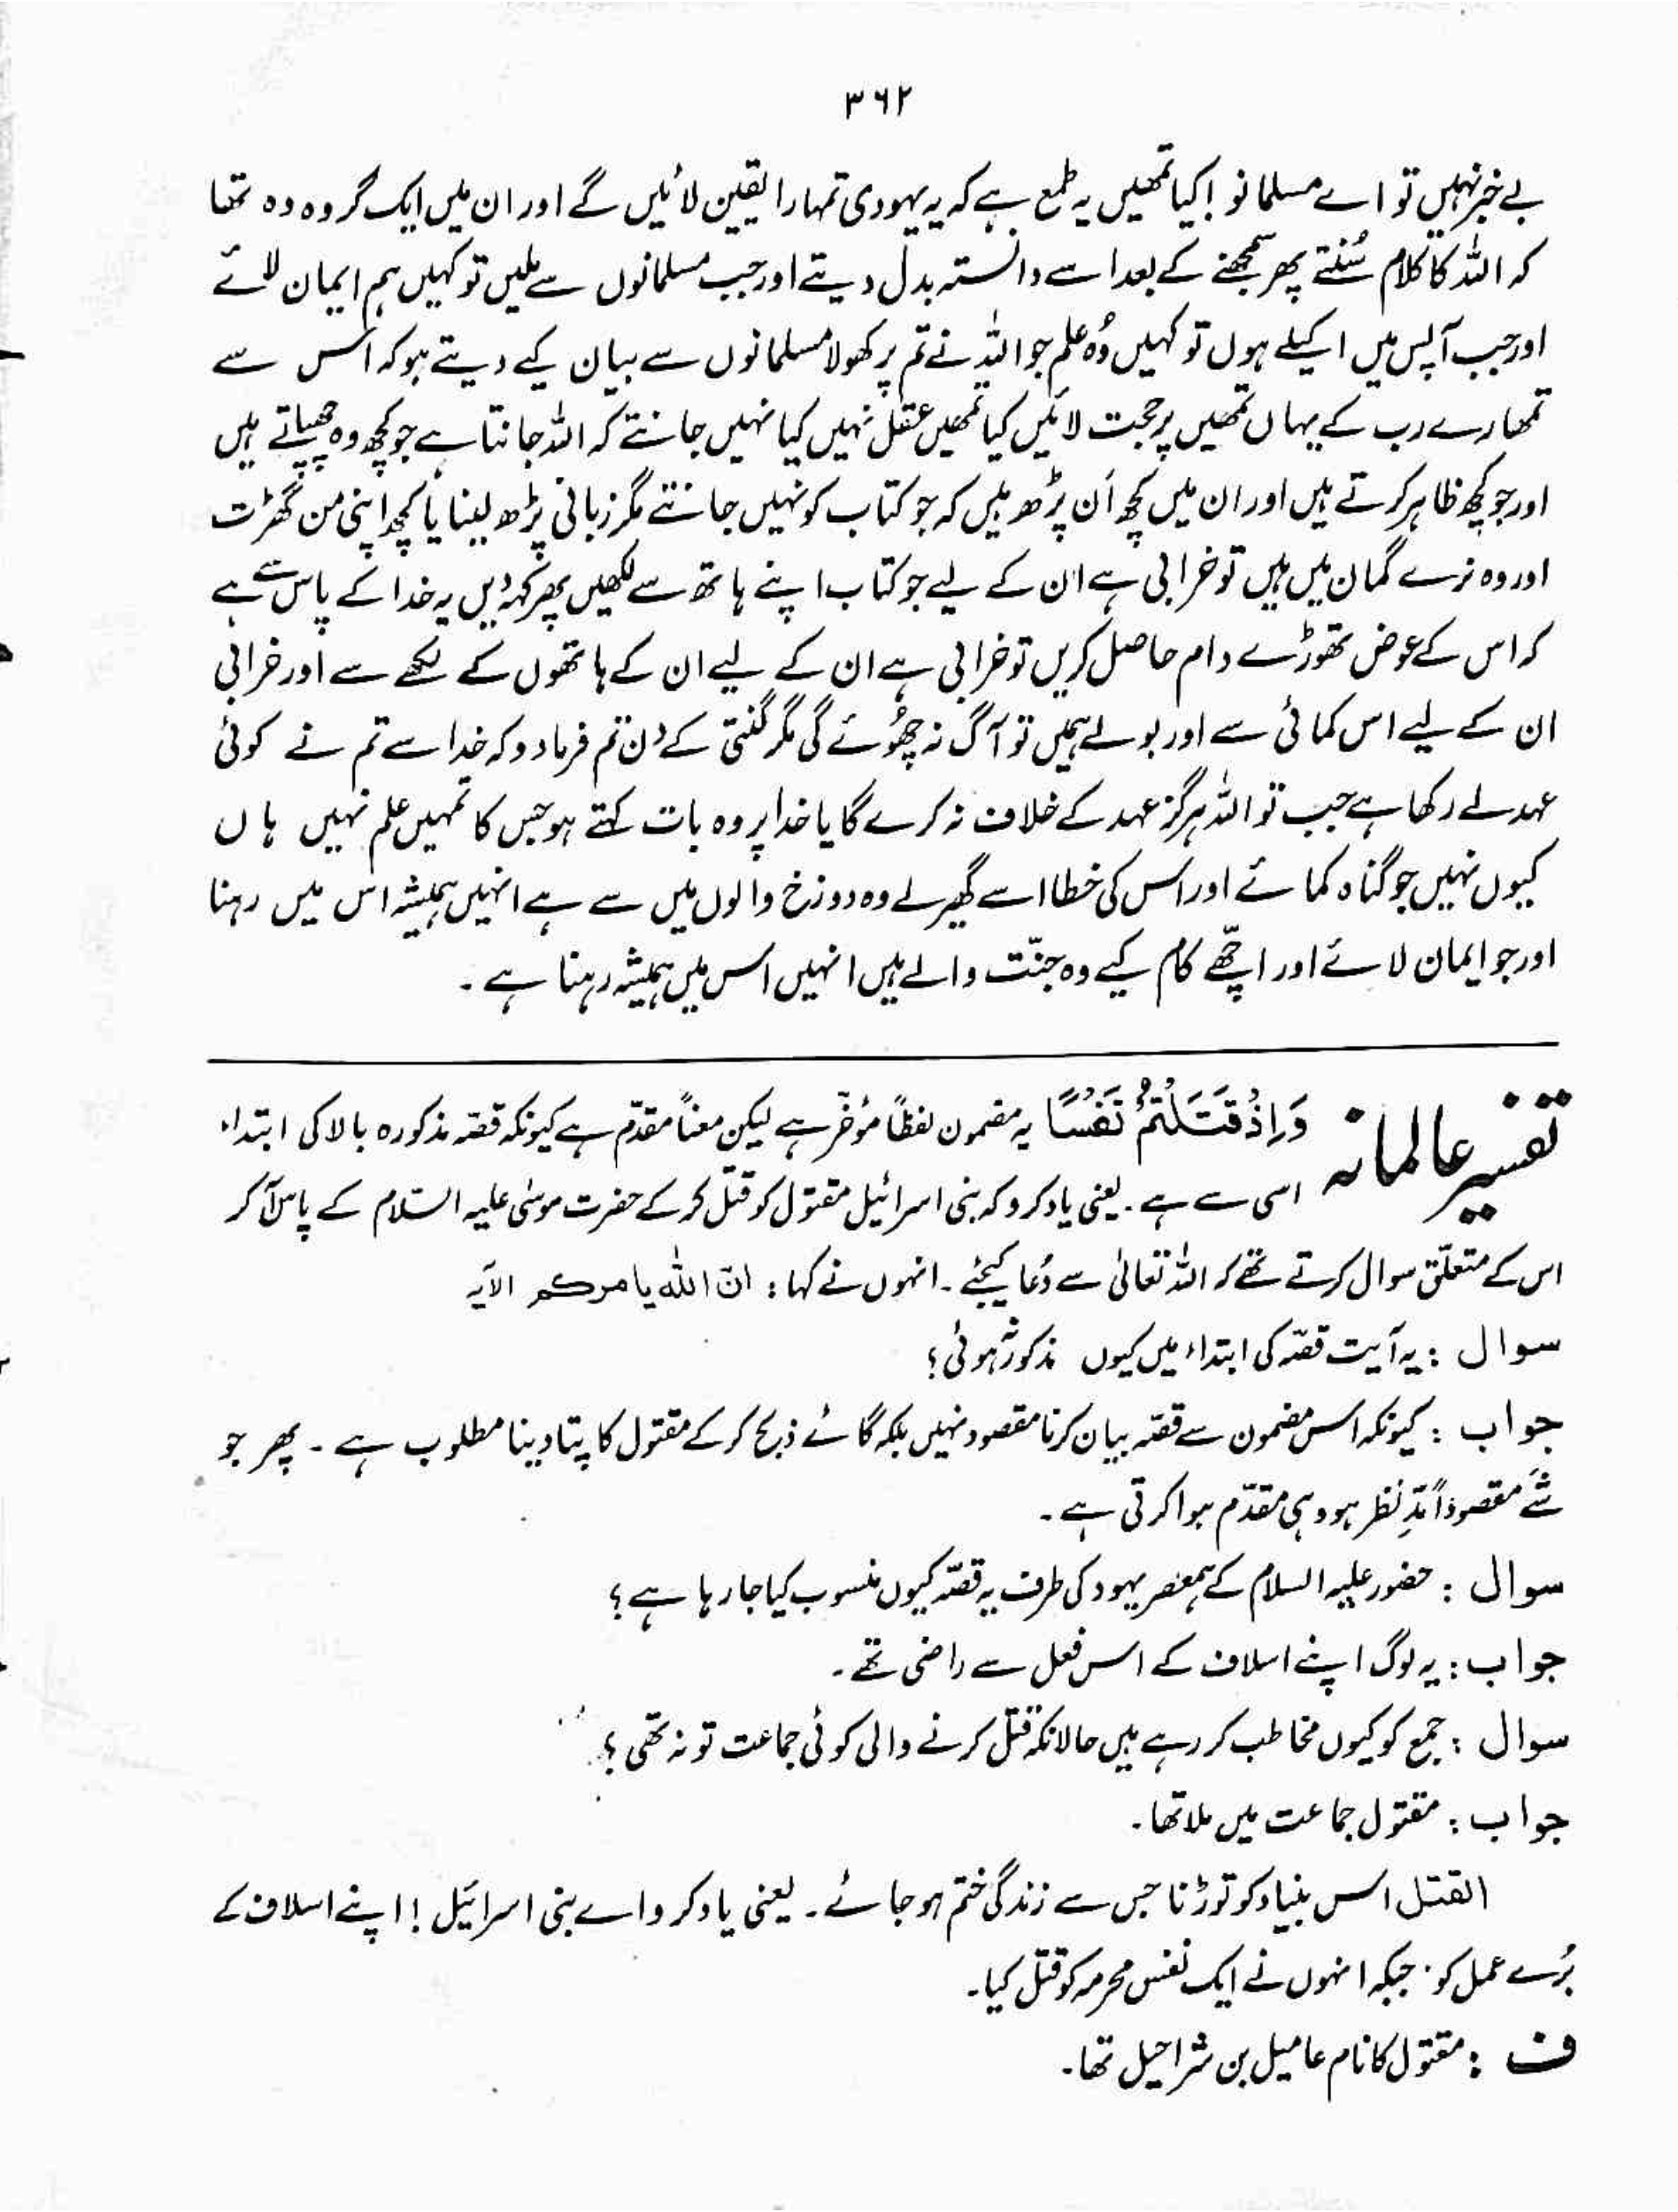 ۳۶۲
بے خبر نہیں تو اے مسلمانو! کیا تمھیں یہ طمع ہے کہ یہ یہودی تمہارا یقین لائیں گے اور ان میں ایک گروہ وہ تھا
کہ اللہ کا کلام سُنتے پھر سمجھنے کے بعد اسے دانستہ بدل دیتے اور جب مسلمانوں سے ملیں تو کہیں ہم ایمان لائے
اور جب آپس میں اکیلے ہوں تو کہیں وُہ علم جو اللہ نے تم پر کھولا مسلمانوں سے بیان کیے دیتے ہو کہ اس سے
تمھارے رب کے یہاں تمھیں پر حجت لائیں کیا تمھیں عقل نہیں کیا نہیں جانتے کہ اللہ جانتا ہے جو کچھ وہ چھپاتے ہیں
اور جو کچھ ظاہر کرتے ہیں اور ان میں کچھ اَن پڑھ ہیں کہ جو کتاب کو نہیں جانتے مگر زبانی پڑھ لینا یا کچھ اپنی من گھڑت
اور وہ نرے گمان میں ہیں تو خرابی ہے ان کے لیے جو کتاب اپنے ہاتھ سے لکھیں پھر کہہ دیں یہ خدا کے پاس سے ہے
کہ اس کے عوض تھوڑے دام حاصل کریں تو خرابی ہے ان کے لیے ان کے ہاتھوں کے لکھے سے اور خرابی
ان کے لیے اس کمائی سے اور بولے ہمیں تو آگ نہ چھُوئے گی مگر گنتی کے دن تم فرمادو کہ خدا سے تم نے کوئی
عہد لے رکھا ہے جب تو اللہ ہرگز عہد کے خلاف نہ کرے گا یا خدا پر وہ بات کہتے ہو جس کا تمہیں علم نہیں ہاں
کیوں نہیں جو گناہ کمائے اور اس کی خطا اسے گھیر لے وہ دوزخ والوں میں سے ہے انہیں ہمیشہ اس میں رہنا
اور جو ایمان لائے اور اچھے کام کیے وہ جنّت والے ہیں انہیں اس میں ہمیشہ رہنا ہے۔
تفسیر عالمانہ وَاِذْ قَتَلْتُمْ نَفْسًا یہ مضمون لفظاً مؤخّر ہے لیکن معناً مقدّم ہے کیونکہ قصّہ مذکورہ بالا کی ابتداء
اسی سے ہے۔ یعنی یاد کرو کہ بنی اسرائیل مقتول کو قتل کر کے حضرت موسٰی علیہ السّلام کے پاس آکر
اس کے متعلّق سوال کرتے تھے کہ اللہ تعالیٰ سے دُعا کیجئے۔ انہوں نے کہا : انّ اللہ یامرکم الآیہ
سوال : یہ آیت قصّہ کی ابتداء میں کیوں مذکور نہ ہوئی؟
جواب : کیونکہ اس مضمون سے قصّہ بیان کرنا مقصود نہیں بلکہ گائے ذبح کر کے مقتول کا پتا دینا مطلوب ہے۔ پھر جو
شَے مقصوداً مدِّ نظر ہو وہی مقدّم ہوا کرتی ہے۔
سوال : حضور علیہ السلام کے ہمعصر یہود کی طرف یہ قصّہ کیوں منسوب کیا جا رہا ہے؟
جواب : یہ لوگ اپنے اسلاف کے اس فعل سے راضی تھے۔
سوال : جمع کو کیوں مخاطب کر رہے ہیں حالانکہ قتل کرنے والی کوئی جماعت تو نہ تھی؟
جواب : مقتول جماعت میں ملا تھا۔
القتل اس بنیاد کو توڑنا جس سے زندگی ختم ہو جائے۔ یعنی یاد کرو اے بنی اسرائیل! اپنے اسلاف کے
بُرے عمل کو۔ جبکہ انہوں نے ایک نفس محرمہ کو قتل کیا۔
ف : مقتول کا نام عامیل بن شراحیل تھا۔